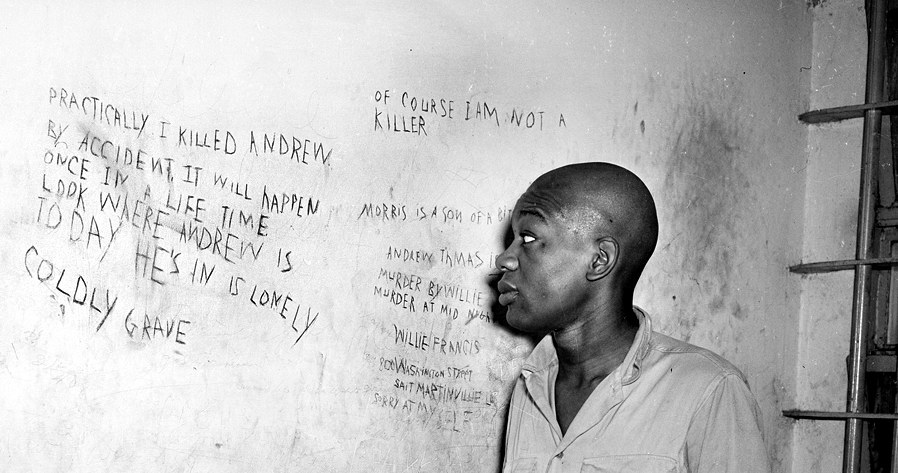 PRACTICALLY I KILLED ANDREW
BY ACCIDENT, IT WILL HAPPEN
ONCE IN A LIFE TIME
LOOK WHERE ANDREW IS
TODAY HE'S IN IS LONELY
COLDLY GRAVE
OF COURSE I AM NOT A
KILLER
MORRIS IS A SON OF A BIT
ANDREW THMAS
MURDER BY WILLIE
MURDER AT MID
WILLIE FRANCIS
800 WASHINGTON STREET
SAIT MARTINVILLE
SORRY AT MY